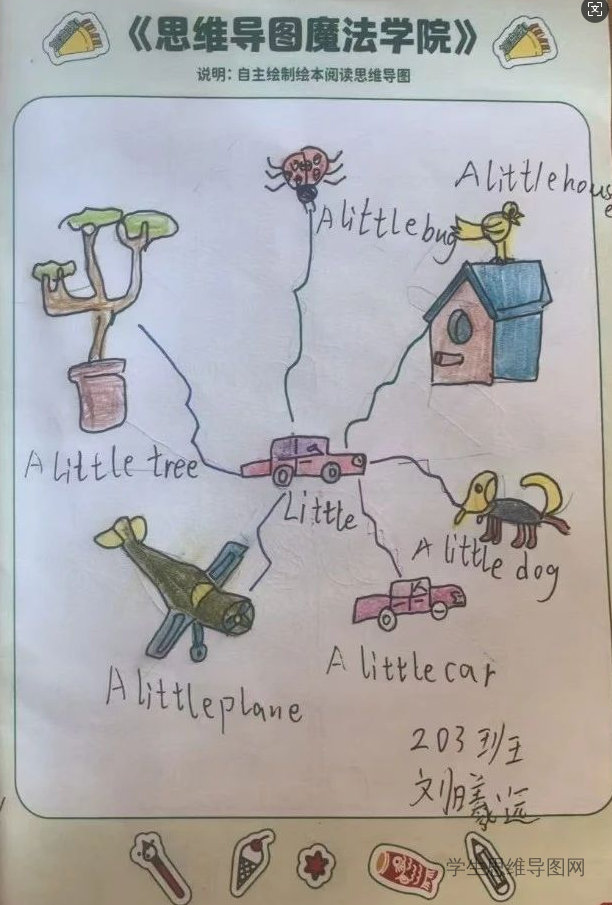 《思维导图魔法学院》
说明：自主绘制绘本阅读思维导图
A little house
A little bug
A little tree
Little
A little dog
A little car
A little plane
203班
刘曦远
学生思维导图网